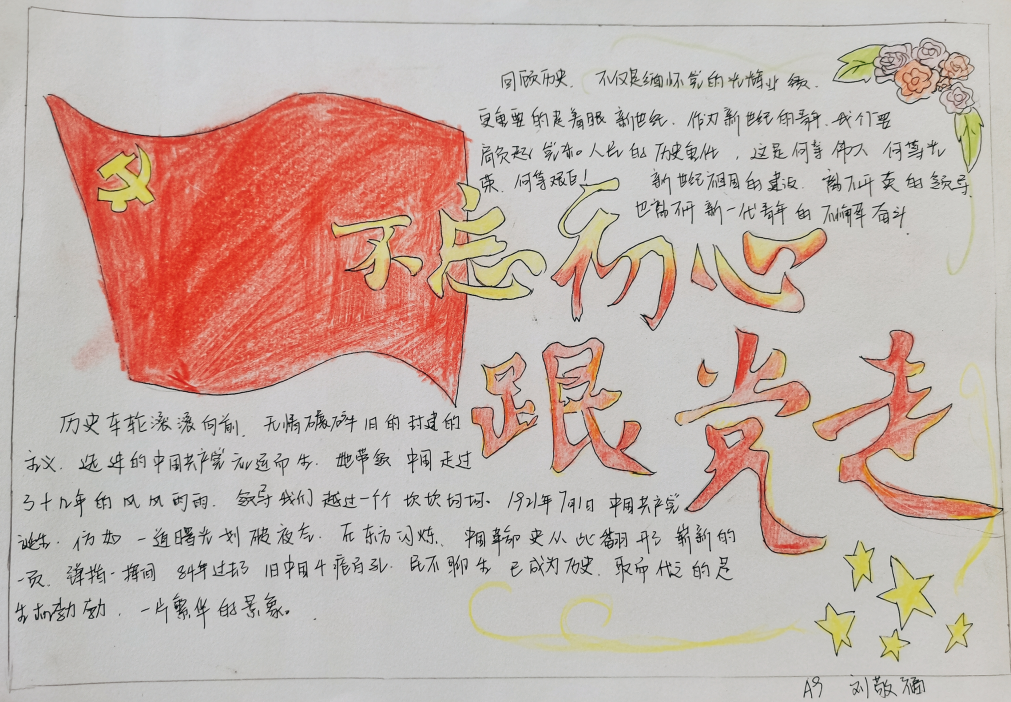 回顾历史，不仅是缅怀党的光辉业绩，
更重要的是着眼新世纪，作为新世纪的青年，我们要
肩负起人民的历史重任，这是何等伟大 何等光
荣，何等艰巨！ 新世纪祖国的建设，离不开党的领导，
也离不开新一代青年的不懈奋斗
不忘初心
跟党走
历史车轮滚滚向前，无情碾碎旧的封建的
主义，先进的中国共产党应运而生，她带领中国走过
了十几年的风风雨雨，领导我们越过一个坎坎坷坷。1921年7月1日中国共产党
诞生，仿如一道曙光划破夜空，在东方闪烁，中国革命史从此翻开了崭新的
一页，弹指一挥间 84年过去了 旧中国千疮百孔，民不聊生 已成为历史，取而代之的是
生机勃勃，一片繁华的景象。
刘敬